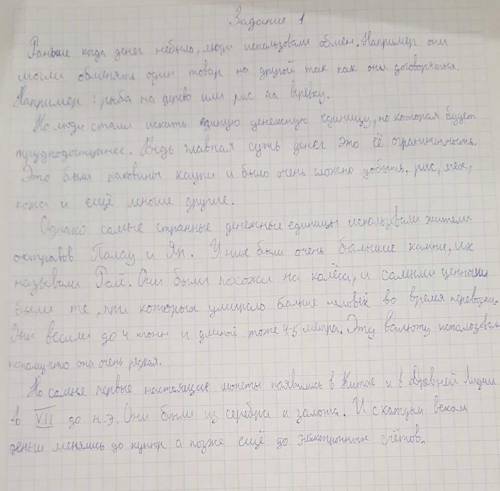 Задание 1
Раньше когда денег небыло, люди использовали обмен. Например они
могли обменять один товар на другой так как они договорятся.
Например: рыба на дерево или рис на верёвку.
Но люди стали искать единую денежную единицу, но которая будет
труднодоступнее. Ведь главная суть денег это её ограниченность.
Это были раковины каури и было очень сложно добыть. рис, мех,
кожа и ещё многие другие.
Однако самые странные денежные единицы использовали жители
островов Палау и Яп. У них были очень большие камни, их
называли Раи. Они были похожи на колёса, и самыми ценными
были те, при которых умирало больше человек во время перевозки.
Они весили до 4 тонн и длиной тоже 4-5 метра. Эту валюту использовали
потому что она очень редкая.
Но самые первые настоящие монеты появились в Китае и в Древней Лидии
в VII до н.э. Они были из серебра и золота. И с каждым веком
деньги менялись до купюр а позже ещё до электронных счётов.